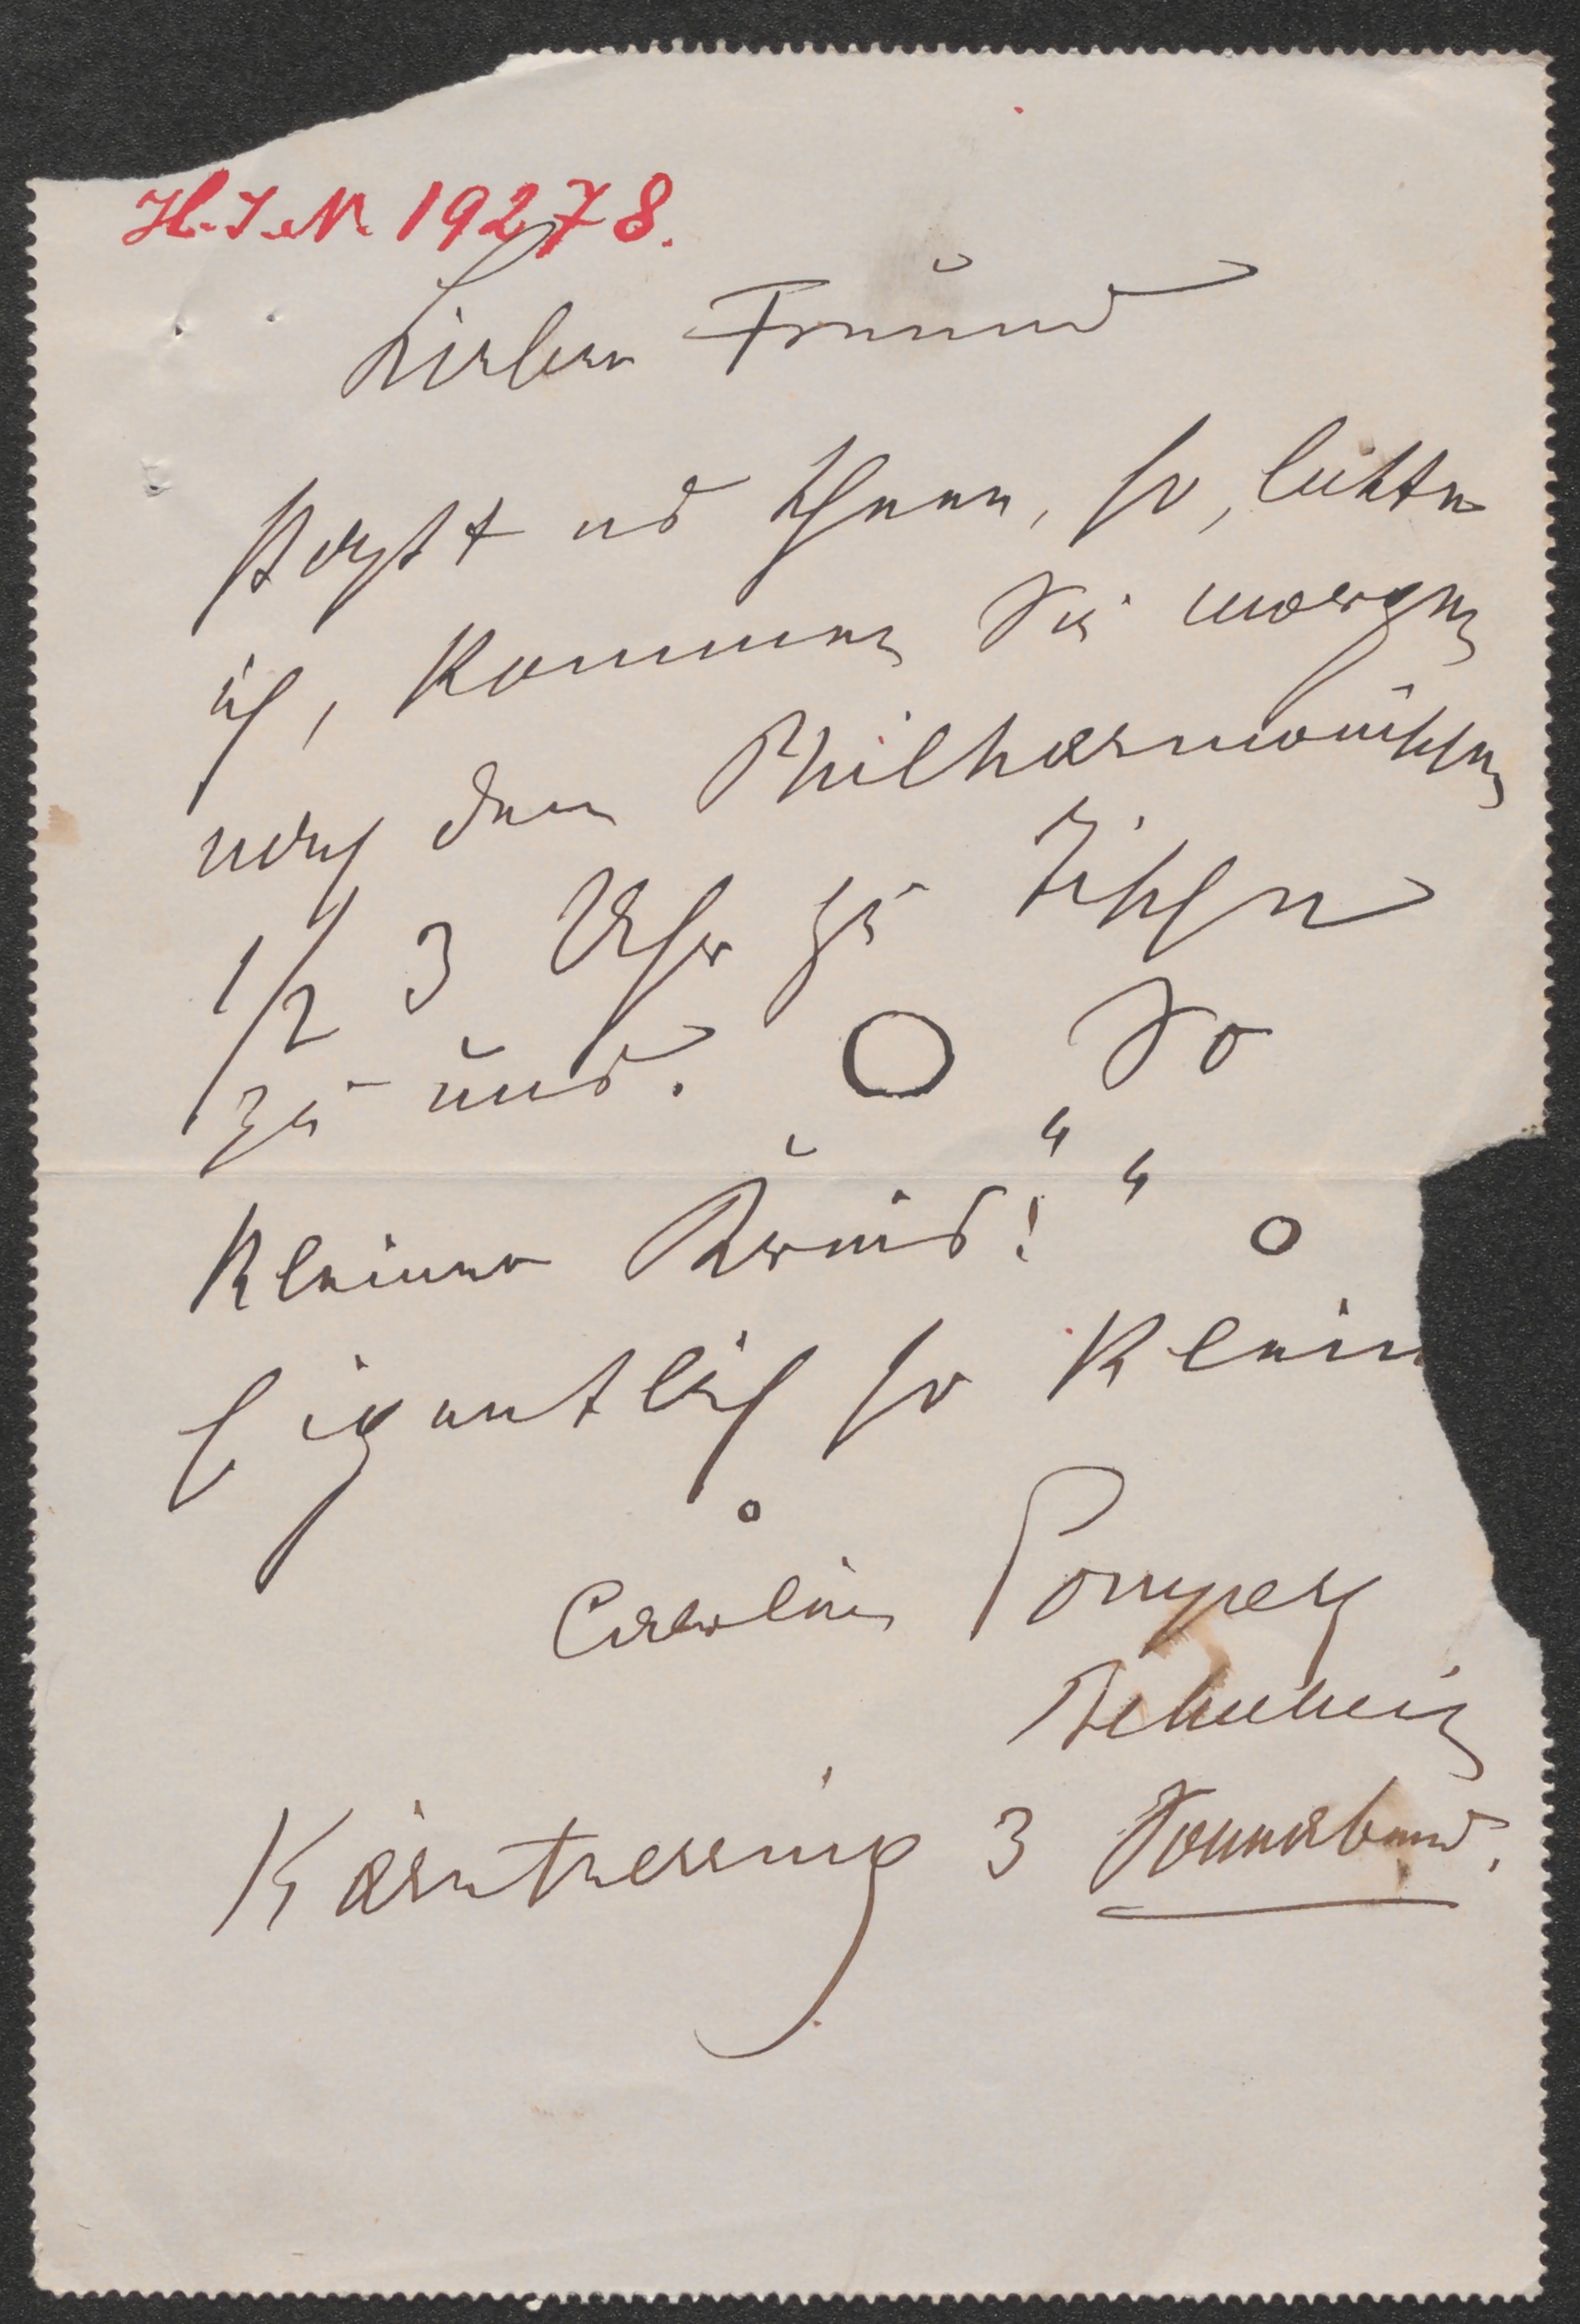 H.I.N. 19278.
Lieber Freund
Paßt es Ihnen, so, bitte
ich, kommen Sie morgen
nach dem Philharmonischen
1/2 3 Uhr zu Tische
zu uns. O So
kleiner Kreis! " "
Eigentlich so klein
Carolin Gomperz
Bettelheim
Kärntnerring 3 Sonnabend.